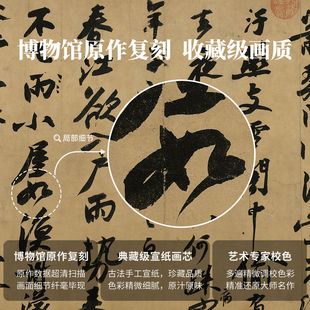 博物馆原作复刻 收藏级画质
汙燕支雪闇中
何
春江欲入户雨勢
不雨小屋如漁
如
局部细节
博物馆原作复刻
原作数据超清扫描
画面细节纤毫毕现
典藏级宣纸画芯
古法手工宣纸，珍藏品质
色彩精微细腻，原汁原味
艺术专家校色
多遍精微调校色彩
精准还原大师名作